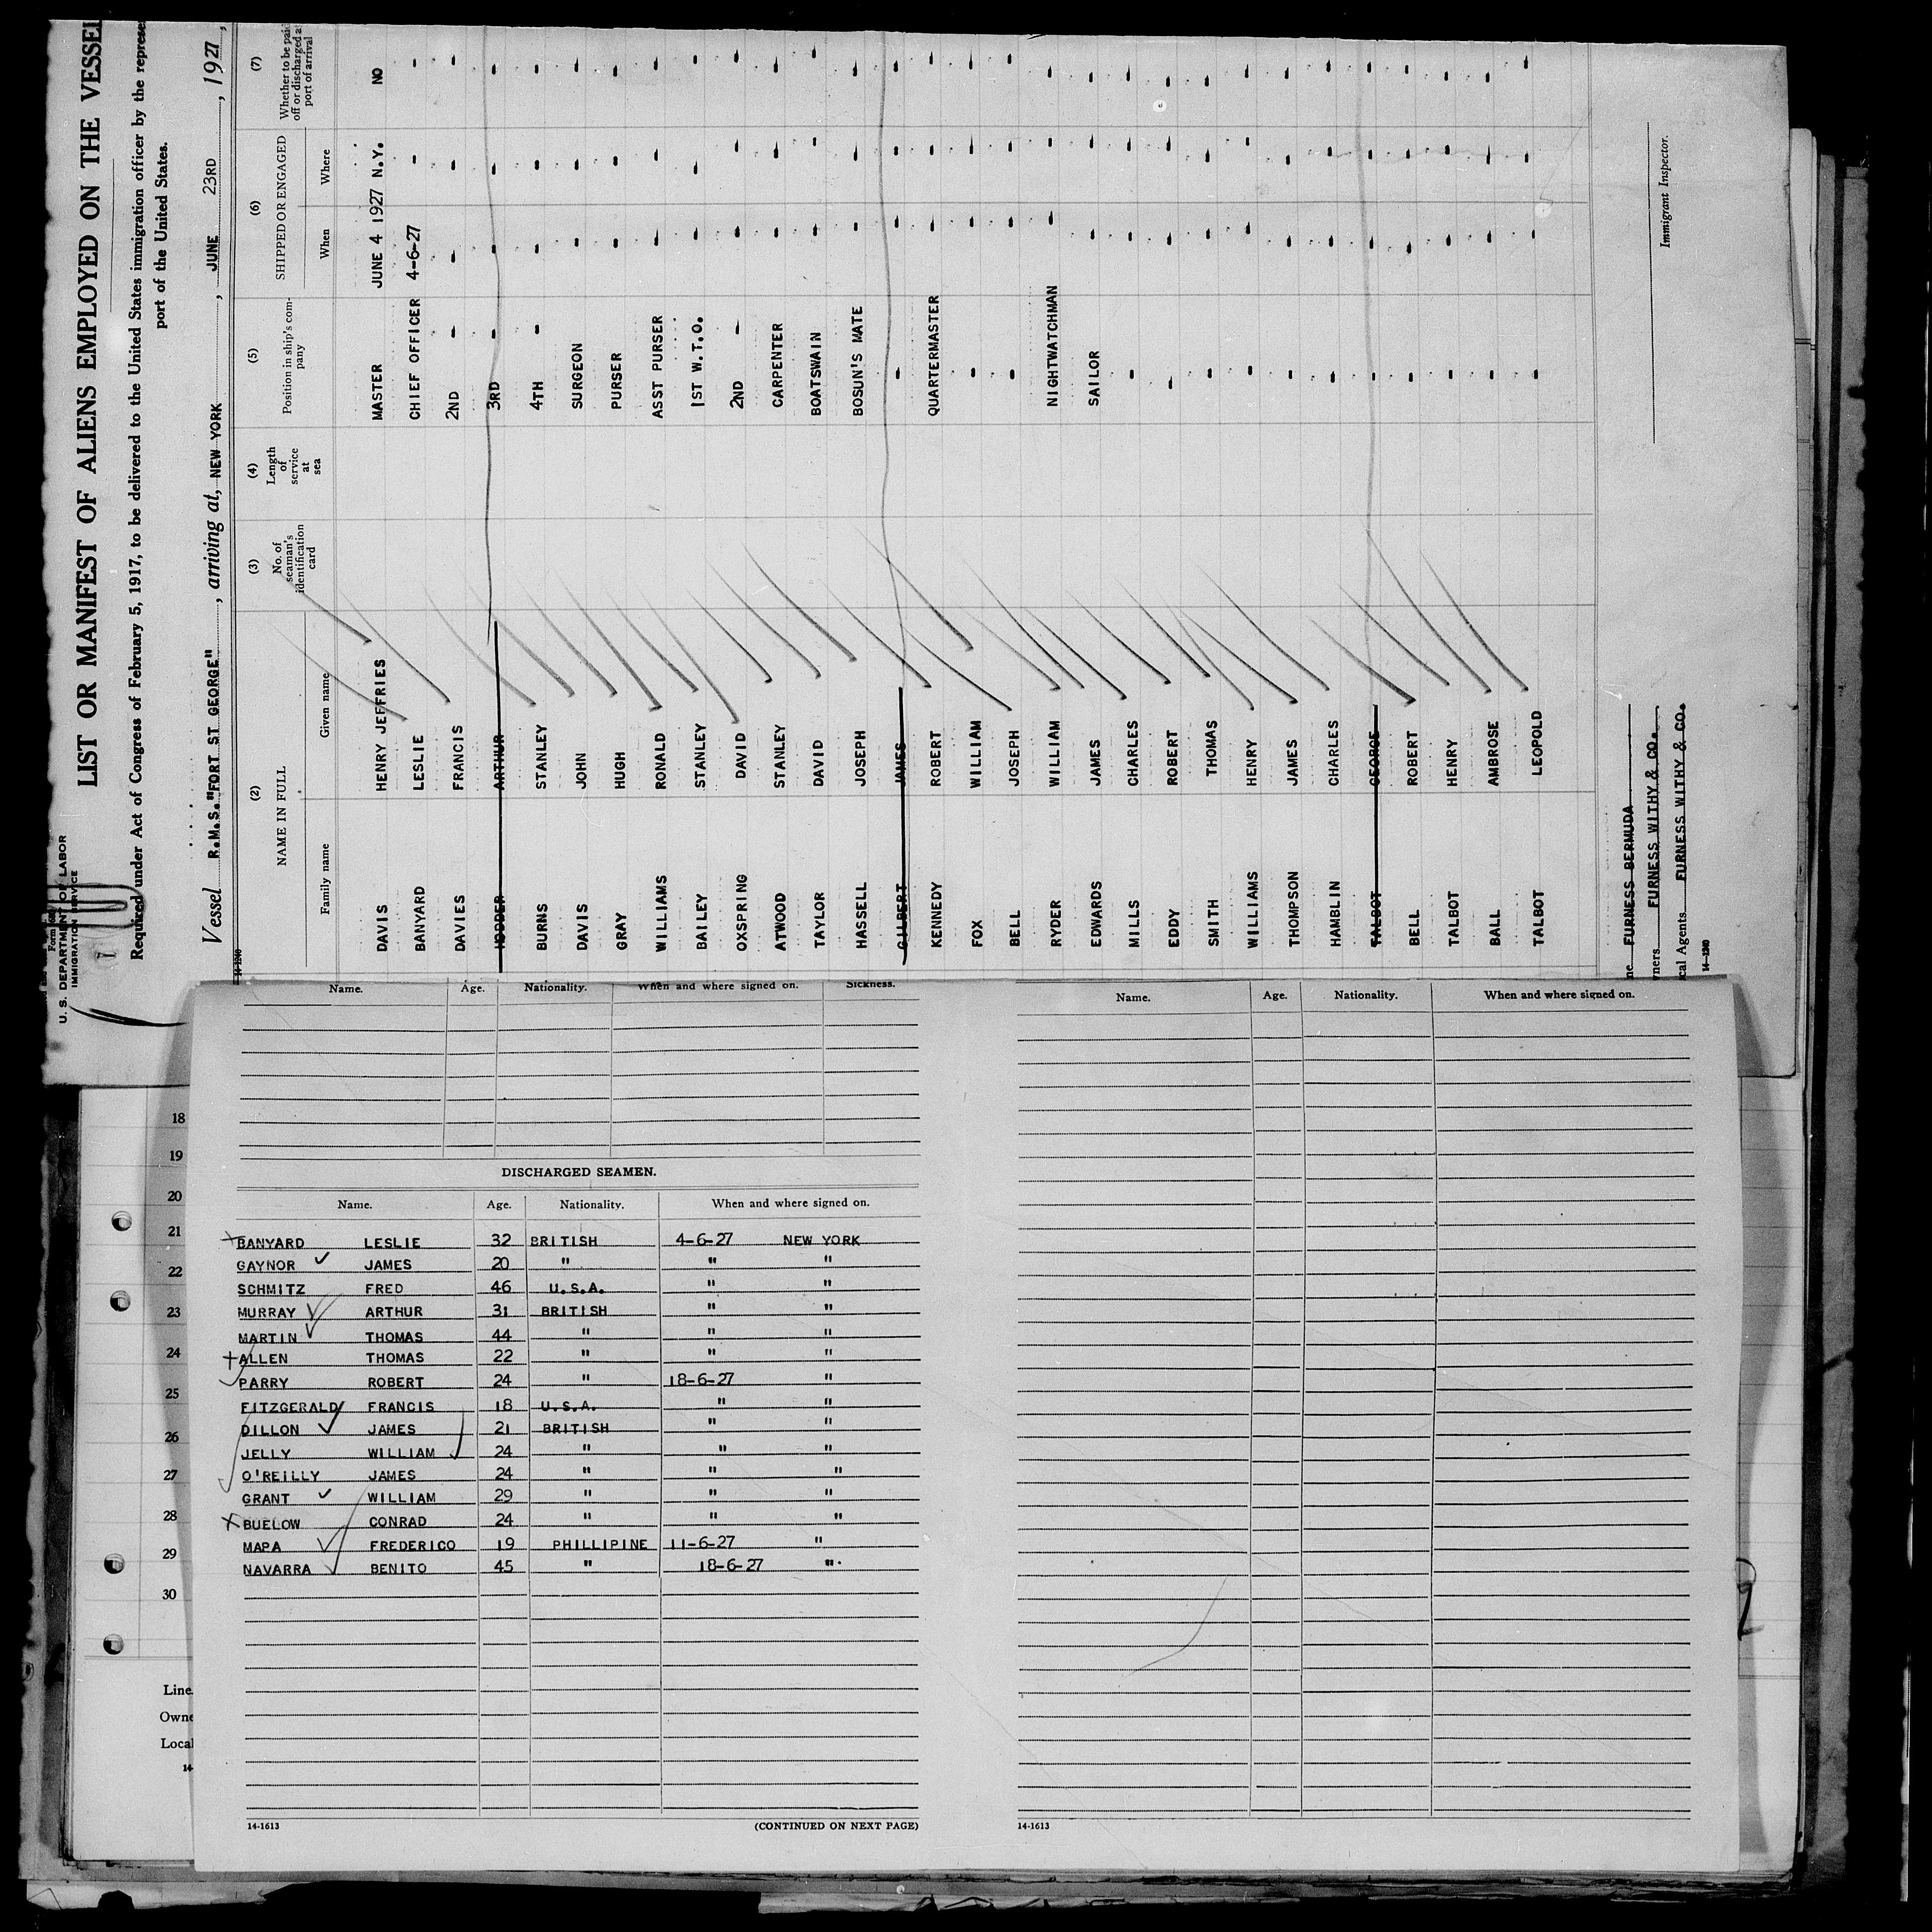 Form 680
U. S. DEPARTMENT OF LABOR
IMMIGRATION SERVICE
LIST OR MANIFEST OF ALIENS EMPLOYED ON THE VESSEL
Required under Act of Congress of February 5, 1917, to be delivered to the United States immigration officer by the represe
port of the United States.
Vessel R.M.S. "FORT ST GEORGE", arriving at, NEW YORK, JUNE 23RD, 1927,
14-1240
(2) (3) (4) (5) (6) (7)
NAME IN FULL No. of seaman's identification card Length of service at sea Position in ship's company SHIPPED OR ENGAGED Whether to be paid off or discharged at port of arrival
Family name Given name When Where
DAVIS HENRY JEFFRIES MASTER JUNE 4 1927 N.Y. NO
BANYARD LESLIE CHIEF OFFICER 4-6-27 - -
DAVIES FRANCIS 2ND - - - -
HODDER ARTHUR 3RD - - - -
BURNS STANLEY 4TH - - - -
DAVIS JOHN SURGEON - - -
GRAY HUGH PURSER - - -
WILLIAMS RONALD ASST PURSER - - -
BAILEY STANLEY 1ST W.T.O. - - -
OXSPRING DAVID 2ND - - - -
ATWOOD STANLEY CARPENTER - - -
TAYLOR DAVID BOATSWAIN - - -
HASSELL JOSEPH BOSUN'S MATE - - -
GILBERT JAMES - - - -
KENNEDY ROBERT QUARTERMASTER - - -
FOX WILLIAM - - - -
BELL JOSEPH - - - -
RYDER WILLIAM NIGHTWATCHMAN - - -
EDWARDS JAMES SAILOR - - -
MILLS CHARLES - - - -
EDDY ROBERT - - - -
SMITH THOMAS - - - -
WILLIAMS HENRY - - - -
THOMPSON JAMES - - - -
HAMBLIN CHARLES - - - -
TALBOT GEORGE - - - -
BELL ROBERT - - - -
TALBOT HENRY - - - -
BALL AMBROSE - - - -
TALBOT LEOPOLD - - - -
ne FURNESS BERMUDA
ners FURNESS WITHY & CO.
cal Agents FURNESS WITHY & CO.
14-1240
Immigrant Inspector.
Name. Age. Nationality. When and where signed on. Sickness.
DISCHARGED SEAMEN.
Name. Age. Nationality. When and where signed on.
BANYARD LESLIE 32 BRITISH 4-6-27 NEW YORK
GAYNOR JAMES 20 " " "
SCHMITZ FRED 46 U.S.A. " "
MURRAY ARTHUR 31 BRITISH " "
MARTIN THOMAS 44 " " "
ALLEN THOMAS 22 " " "
PARRY ROBERT 24 " 18-6-27 "
FITZGERALD FRANCIS 18 U.S.A. " "
DILLON JAMES 21 BRITISH " "
JELLY WILLIAM 24 " " "
O'REILLY JAMES 24 " " "
GRANT WILLIAM 29 " " "
BUELOW CONRAD 24 " " "
MAPA FREDERICO 19 PHILLIPINE 11-6-27 "
NAVARRA BENITO 45 " 18-6-27 "
14-1613
(CONTINUED ON NEXT PAGE)
Name. Age. Nationality. When and where signed on.
14-1613
18
19
20
21
22
23
24
25
26
27
28
29
30
Line
Owne
Local
14-
2